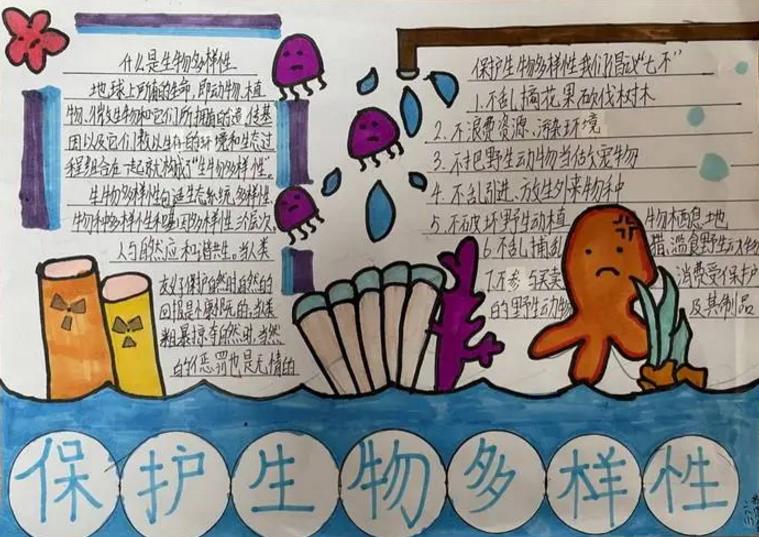 什么是生物多样性
地球上所有的生命,即动物、植
物、微生物和它们所拥有的遗传基
因以及它们赖以生存的环境和生态过
程组合在一起就构成了"生物多样性"。
生物多样性包涵生态系统多样性、
物种多样性和基因多样性三个层次。
人与自然应和谐共生。当人类
友好保护自然时,自然的
回报是慷慨的,当人类
粗暴掠夺自然时,自然
的惩罚也是无情的
保护生物多样性我们倡议"七不"
1.不乱摘花果砍伐树木
2.不浪费资源、污染环境
3.不把野生动物当估宠物
4.不乱引进、放生外来物种
5.不破环野生动植物栖息地
6.不乱捕乱猎、滥食野生动物
7.不参与买卖消费受保护
的野生动物及其制品
保护生物多样性